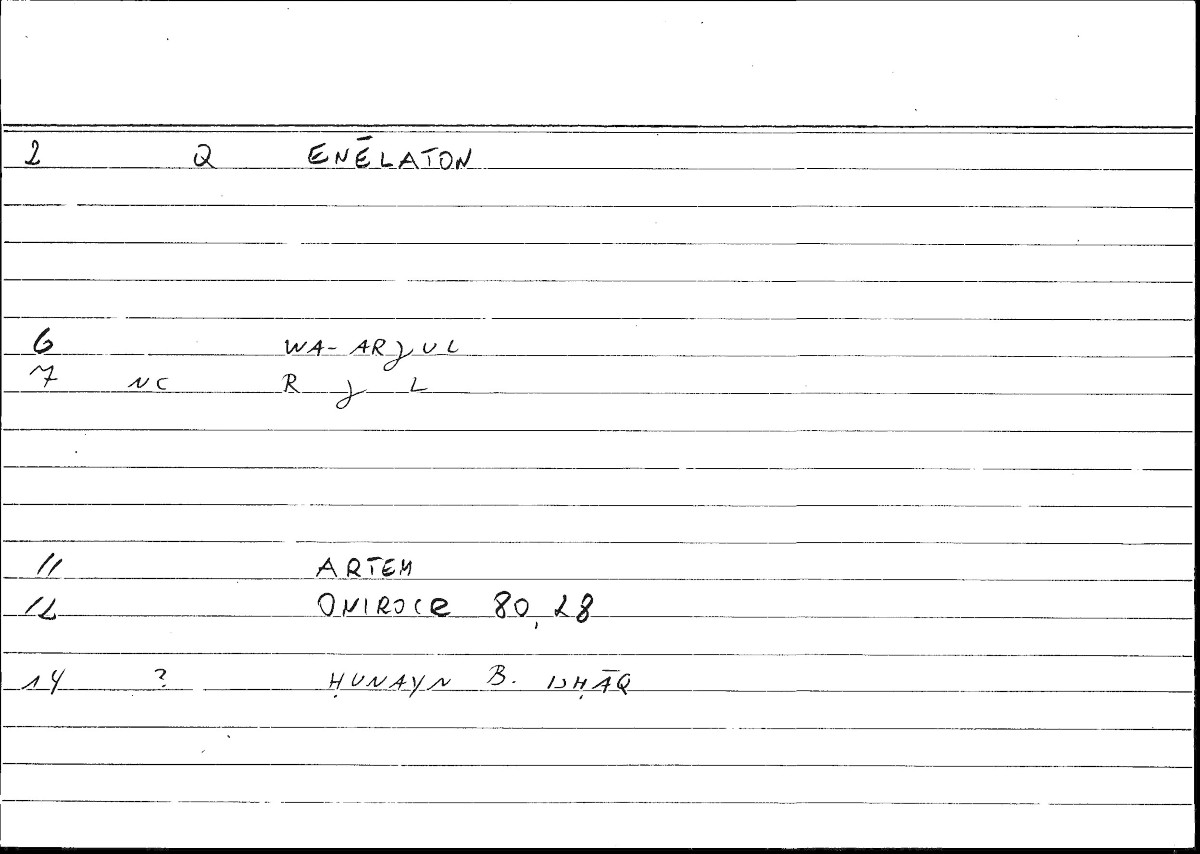 2 Q ENĒLATON
6 WA- ARJUL
7 NC R J L
11 ARTEM
12 ONIROCR 80,28
14 ? ḤUNAYN B. ISḤĀQ